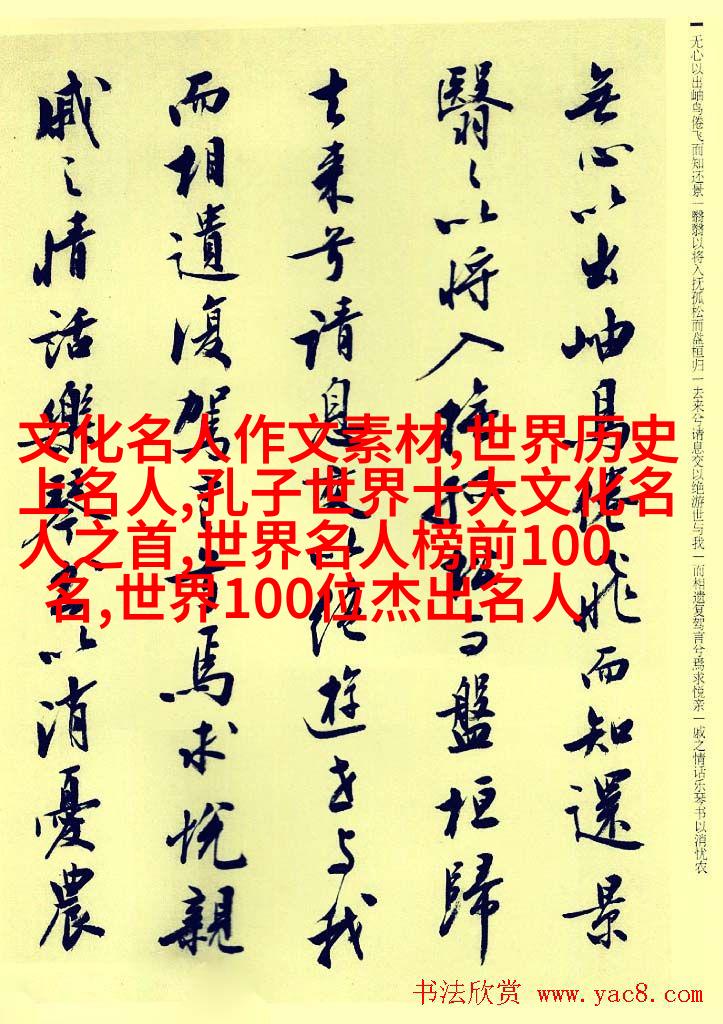 无心以出岫鸟倦飞而知还景|翳翳以将入抚孤松而盘桓归|去来兮请息交以绝游世与我|而相遗复驾言兮焉求悦亲|戚之情话乐琴书以消忧农
無心以出岫鳥倦飛而知還景
翳々以将入撫孤松而盤桓歸
去来兮請息交以絕遊世与我
而相遺復駕言兮焉求悅親
戚之情話樂琴書以消憂農
文化名人作文素材,世界历史
上名人,孔子世界十大文化名
人之首,世界名人榜前100
名,世界100位杰出名人
书法欣赏 www.yac8.com